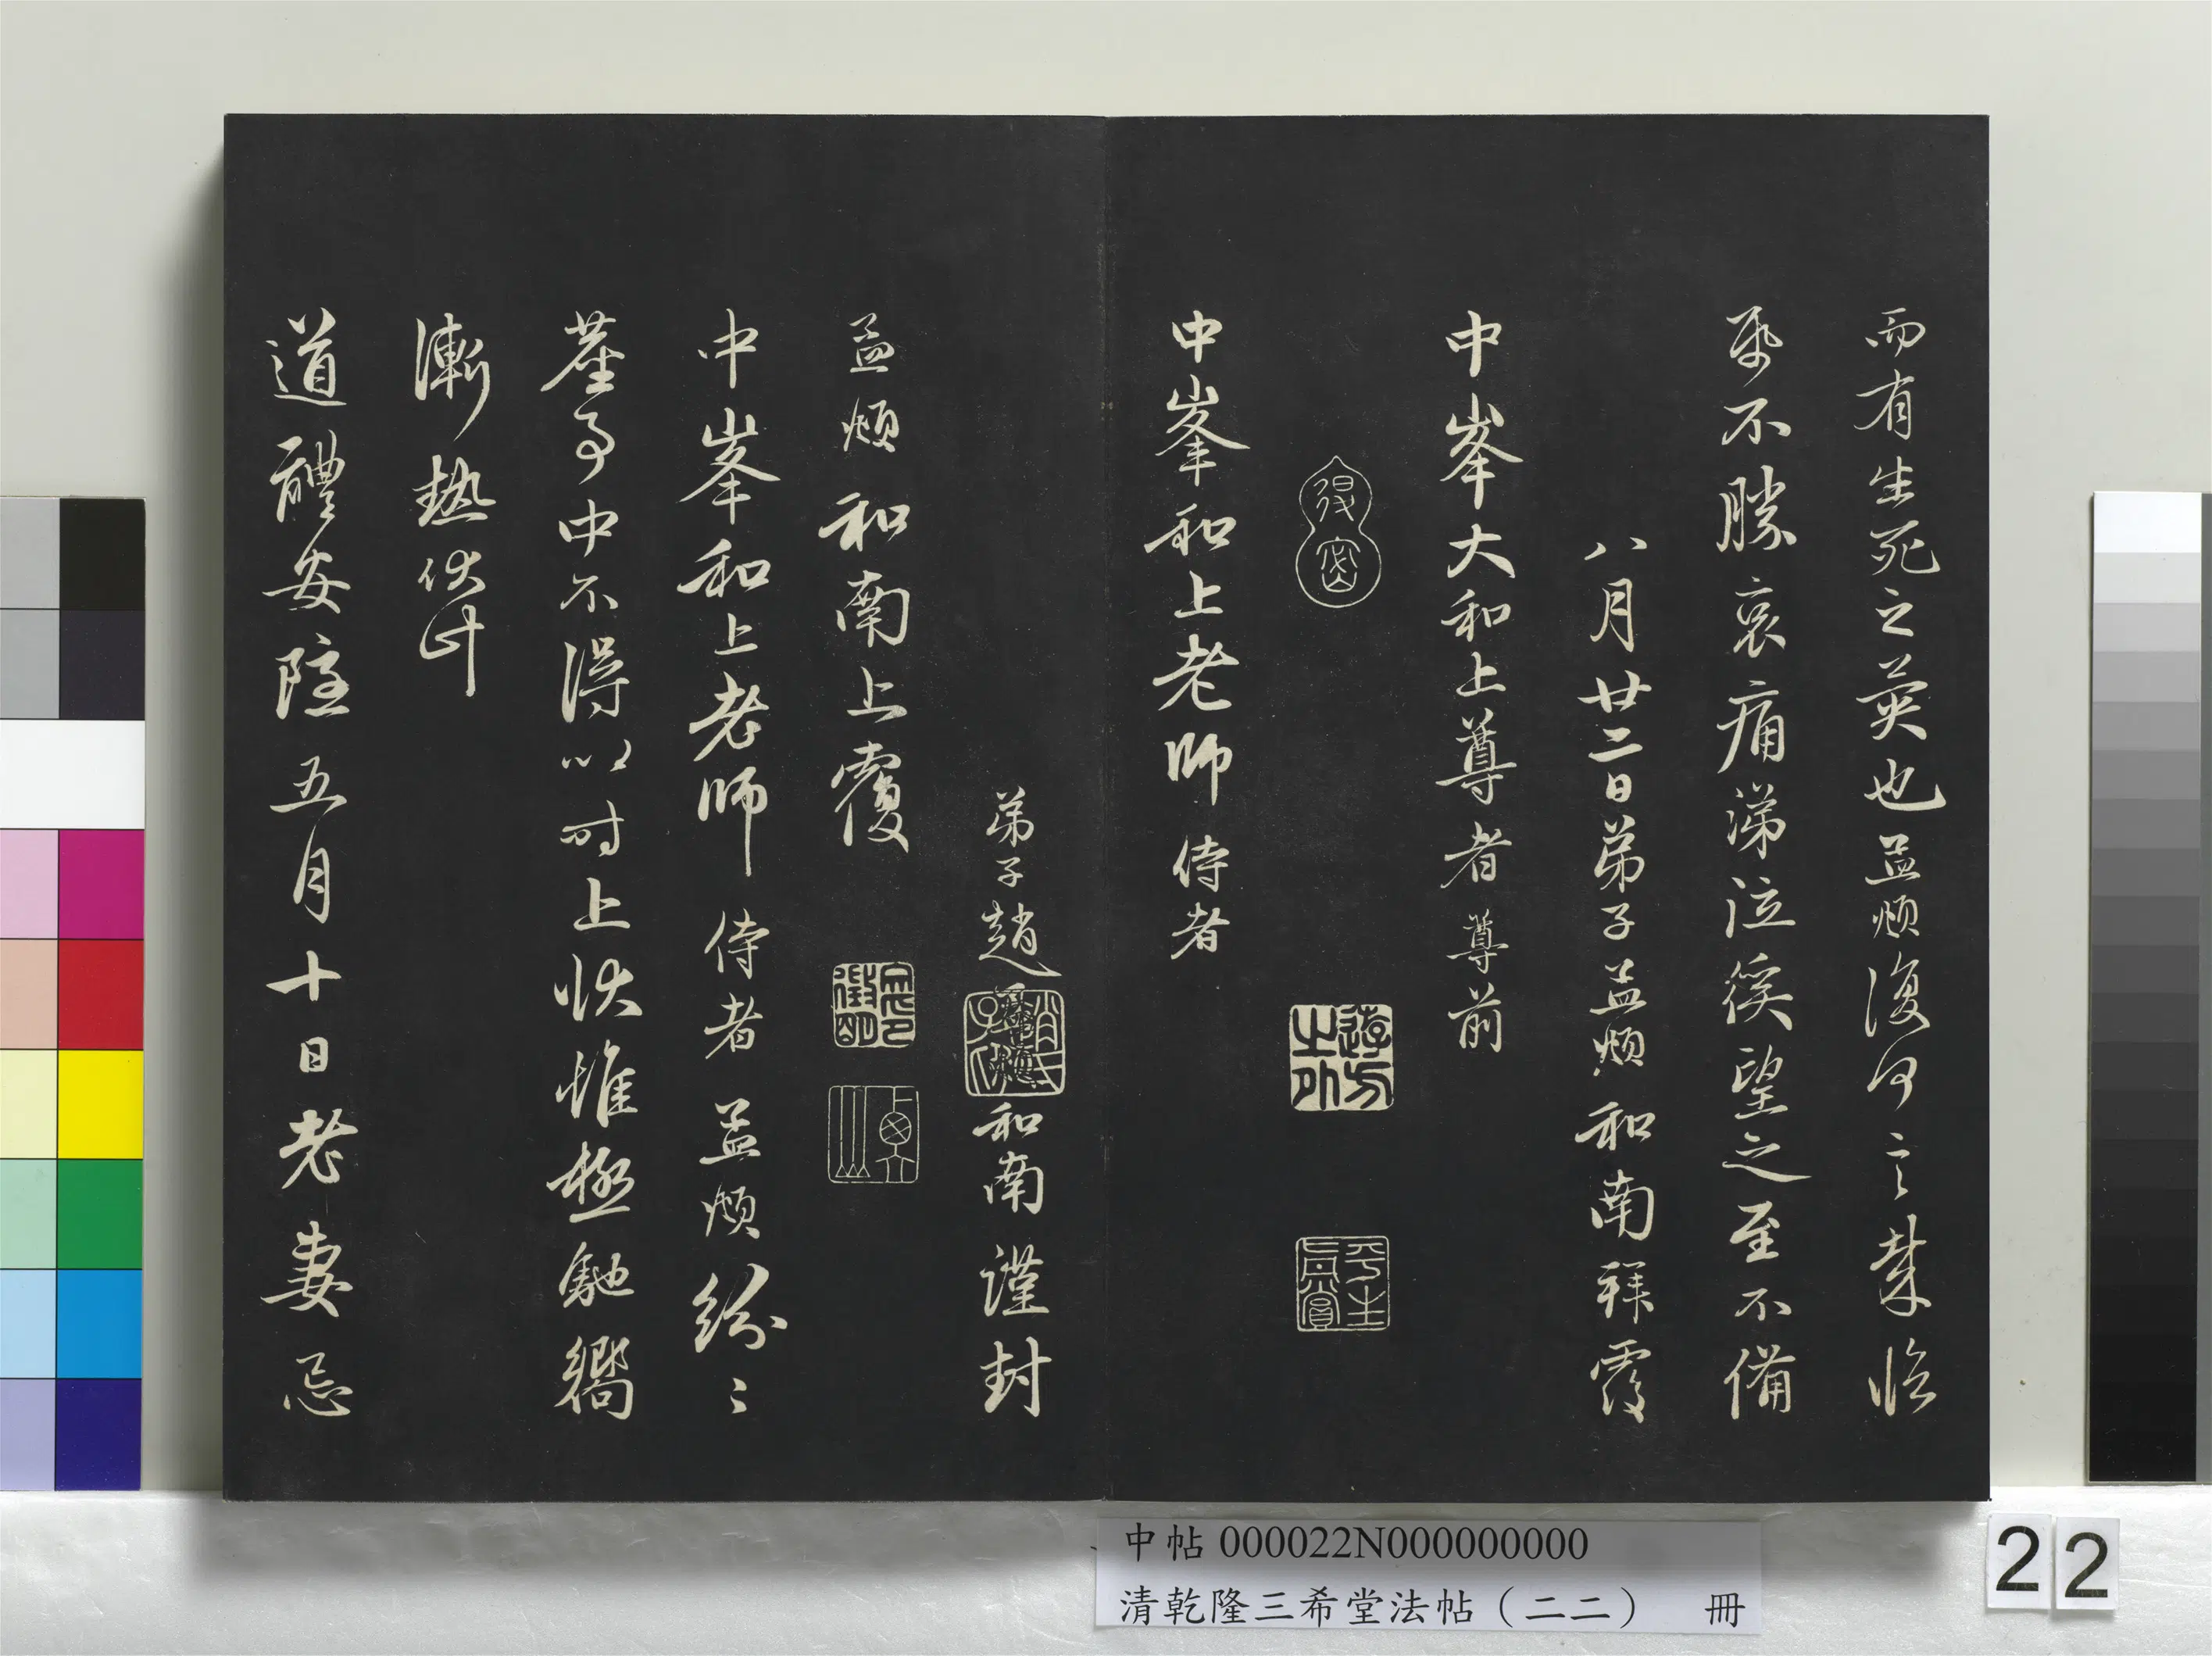 而有生死之異也孟頫復何言臨
帋不勝哀痛涕泣徯望之至不備
八月廿二日弟子孟頫和南拜覆
中峯大和上尊者尊前
得密
遊方之外
平生真賞
中峯和上老師侍者
弟子趙
和南謹封
孟頫和南上覆
中峯和上老師侍者孟頫紛〻
塵事中不得以時上狀惟極馳嚮
漸熱伏計
道體安隱五月十日老妻忌
中帖 000022N000000000
清乾隆三希堂法帖（二二） 冊
22